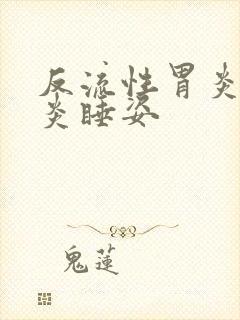 反流性胃炎
炎睡姿
鬼蓮